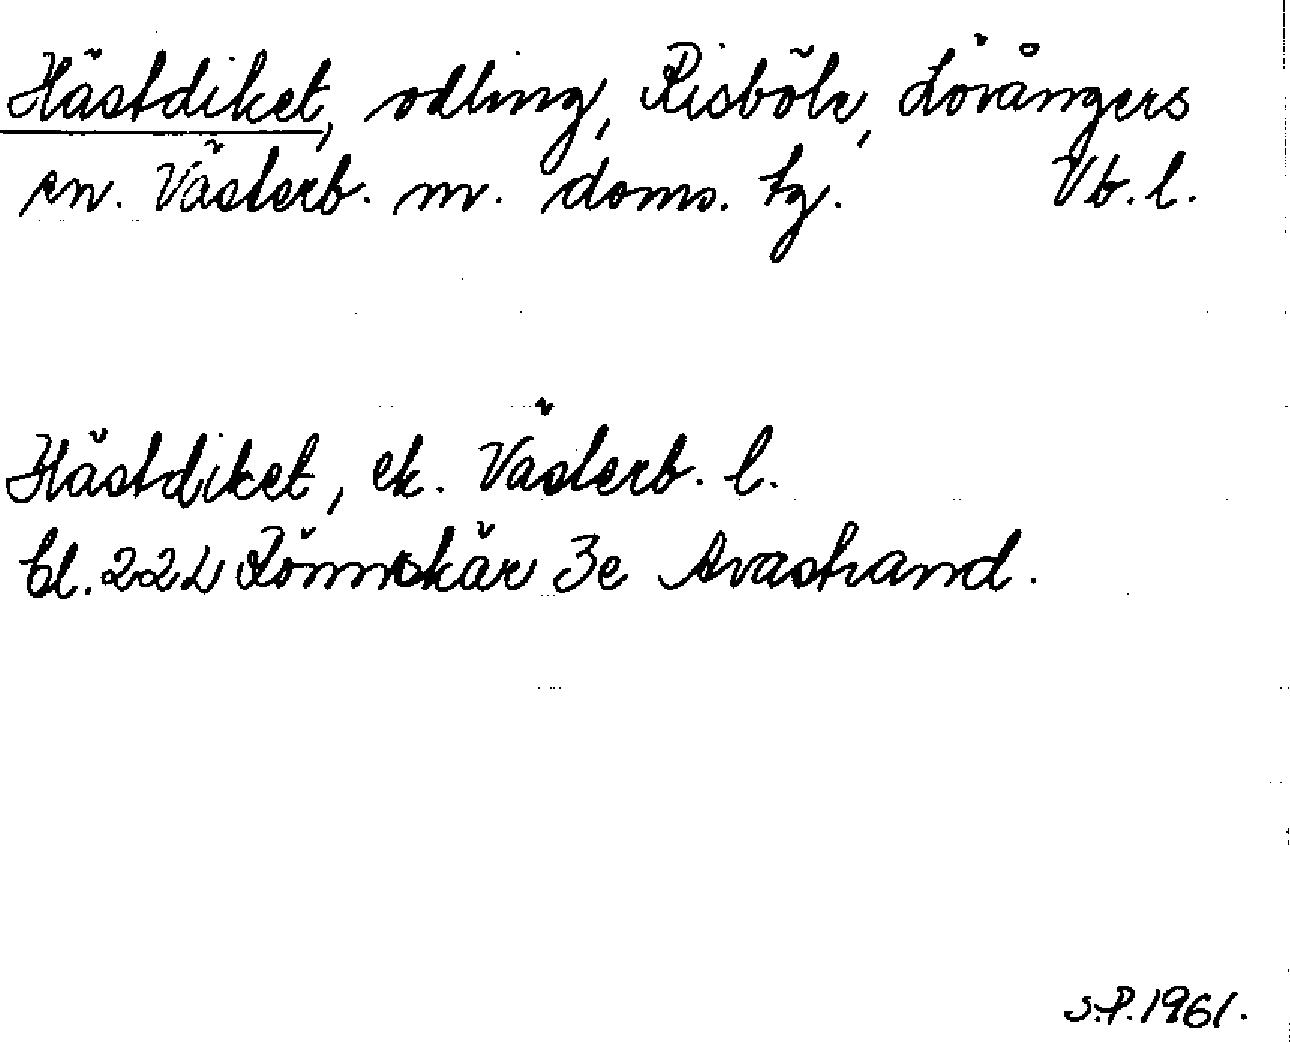 Hästdiket, odling, Risböle, Lövångers
sn. Västerb. n. doms. tg. Vb. l.
Hästdiket, ek. Västerb. l.
bl. 22L Rönnskär 3e Avastrand.
S.P. 1961.